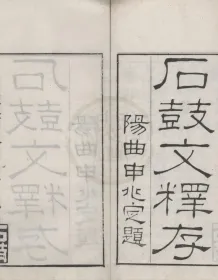 石鼓文釋存
陽曲申兆定題